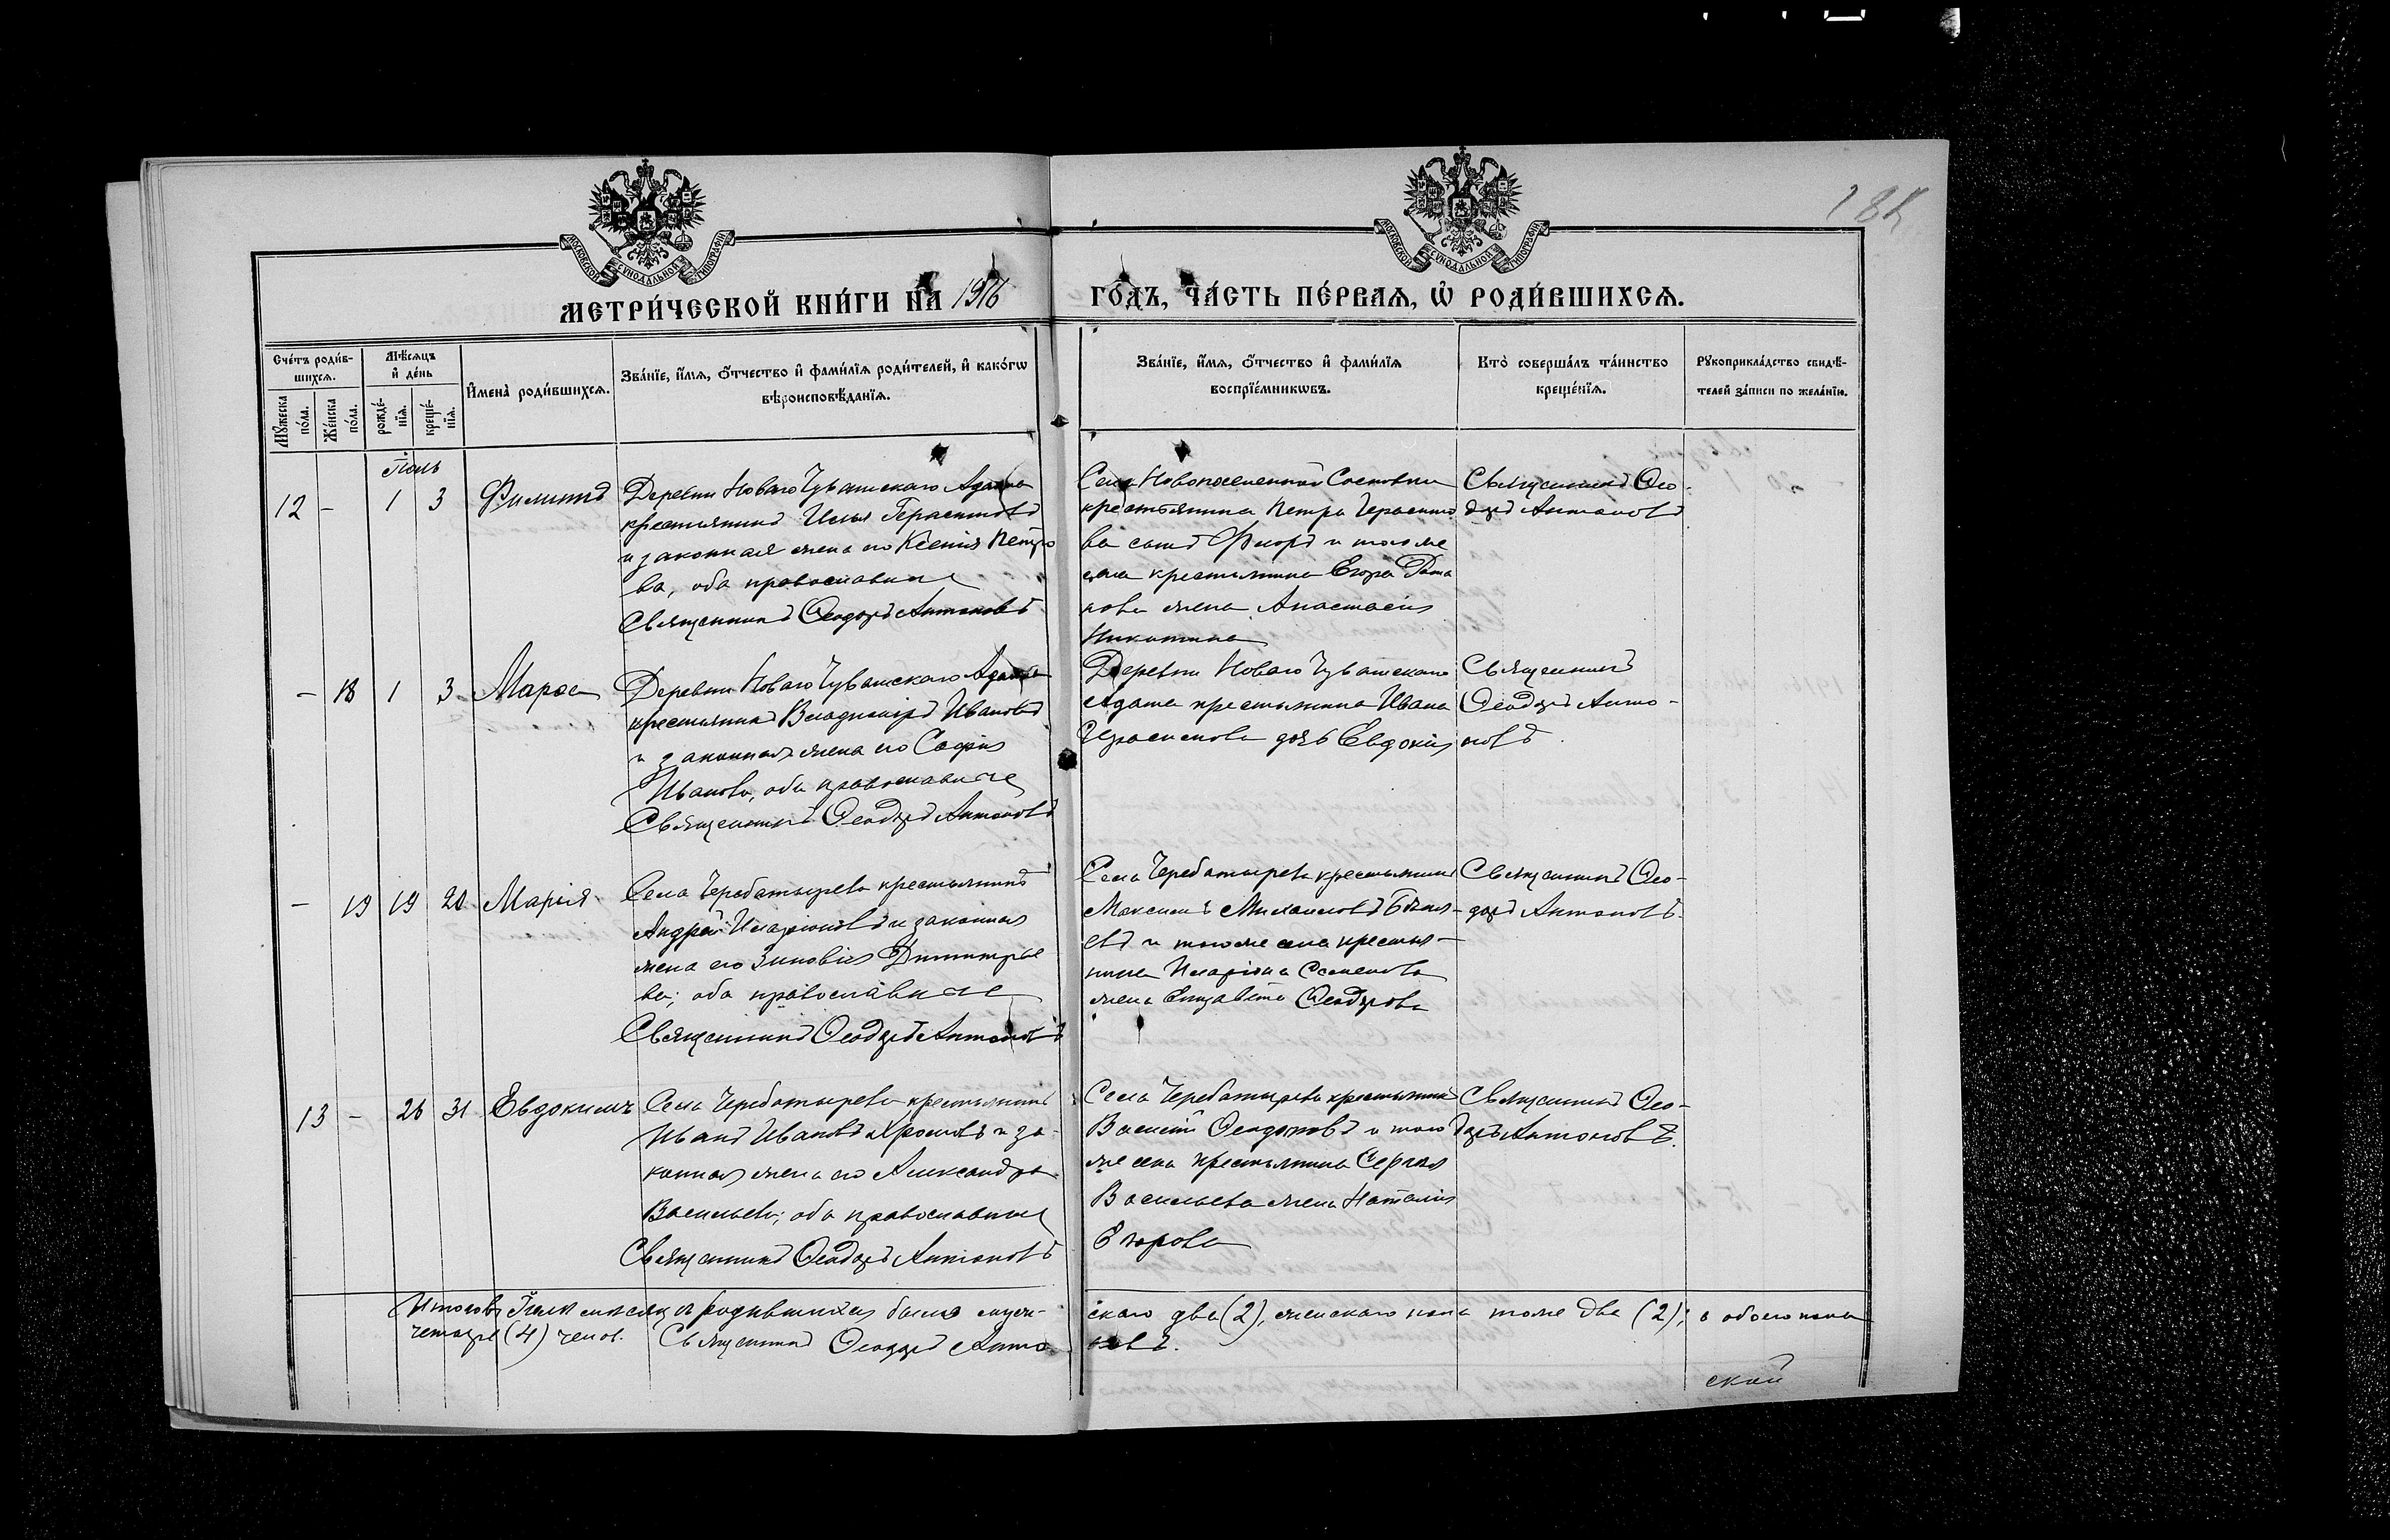 МОСКОВСКОЙ СѴНОДАЛЬНОЙ ТИПОГРАФІИ
МОСКОВСКОЙ СѴНОДАЛЬНОЙ ТИПОГРАФІИ
МЕТРИ́ЧЕСКОЙ КНИ́ГИ НА 1916
ГО́ДЪ, ЧА́СТЬ ПЕ́РВАѦ, Ѡ҆ РОДИ́ВШИХСѦ.
Сче́тъ роди́в-
шихсѧ.
Мꙋ́жеска по́ла.
Же́нска по́ла.
Мѣ́сѧцъ
и҆ де́нь
рожде́-
нїѧ.
креще́-
нїѧ.
И҆мена̀ роди́вшихсѧ.
Зва́нїе, и҆́мѧ, ѻ҆́тчество и҆ фами́лїѧ роди́телей, и҆ како́гѡ
вѣ́роисповѣ́данїѧ.
Зва́нїе, и҆́мѧ, ѻ҆́тчество и҆ фами́лїѧ
воспрїе́мникѡвъ.
Кто̀ соверша́лъ та́инство
креще́нїѧ.
Рꙋкоприкла́дство свидѣ́-
телей за́писи по жела́нїю.
Іюль
12 - 1 3 Филиппъ
Деревни Новаго Чувашскаго Адама
крестьянинъ Илья Герасимовъ
и законная жена его Ксенія Петро
ва, оба православные
Священникъ Ѳеодоръ Антоновъ
Села Новопоселенной
крестьянина Петра Герасимо
ва сынъ и того же
села крестьянина Егора
нова жена Анастасія
Никитина
Священникъ Ѳео-
доръ Антоновъ
- 18 1 3
Деревни Новаго Чувашскаго Адама
крестьянинъ Владиміръ Ивановъ
и законная жена его Софія
Иванова, оба православные
Священникъ Ѳеодоръ Антоновъ
Деревни Новаго Чувашскаго
Адама крестьянина Ивана
Герасимова дочь Евдокія
Священникъ
Ѳеодоръ Анто-
новъ.
- 19 19 20 Марія
Села Черебатырева крестьянинъ
Андрей Иларіоновъ и законная
жена его Зиновія Димитріе
ва; оба православные
Священникъ Ѳеодоръ Антоновъ
Села Черебатырева крестьянинъ
Максимъ Михаиловъ
евъ и того же села крестья-
нина Иларіона Семенова
жена Елизавета Ѳеодорова
Священникъ Ѳео-
доръ Антоновъ.
13 - 26 31 Евдокимъ
Села Черебатырева крестьянинъ
Иванъ Ивановъ и за-
конная жена его Александра
Васильева; оба православные
Священникъ Ѳеодоръ Антоновъ
Села Черебатырева крестьянинъ
Василій Ѳеодоровъ и того
же села крестьянина Сергѣя
Васильева жена Наталія
Егорова
Священникъ Ѳео-
доръ Антоновъ.
Итого въ Іюлѣ мѣсяцѣ родившихся было муж-
скаго два (2), женскаго пола тоже два (2); а обоего пола
четыре (4) челов. Священникъ Ѳеодоръ Анто
новъ.
ской